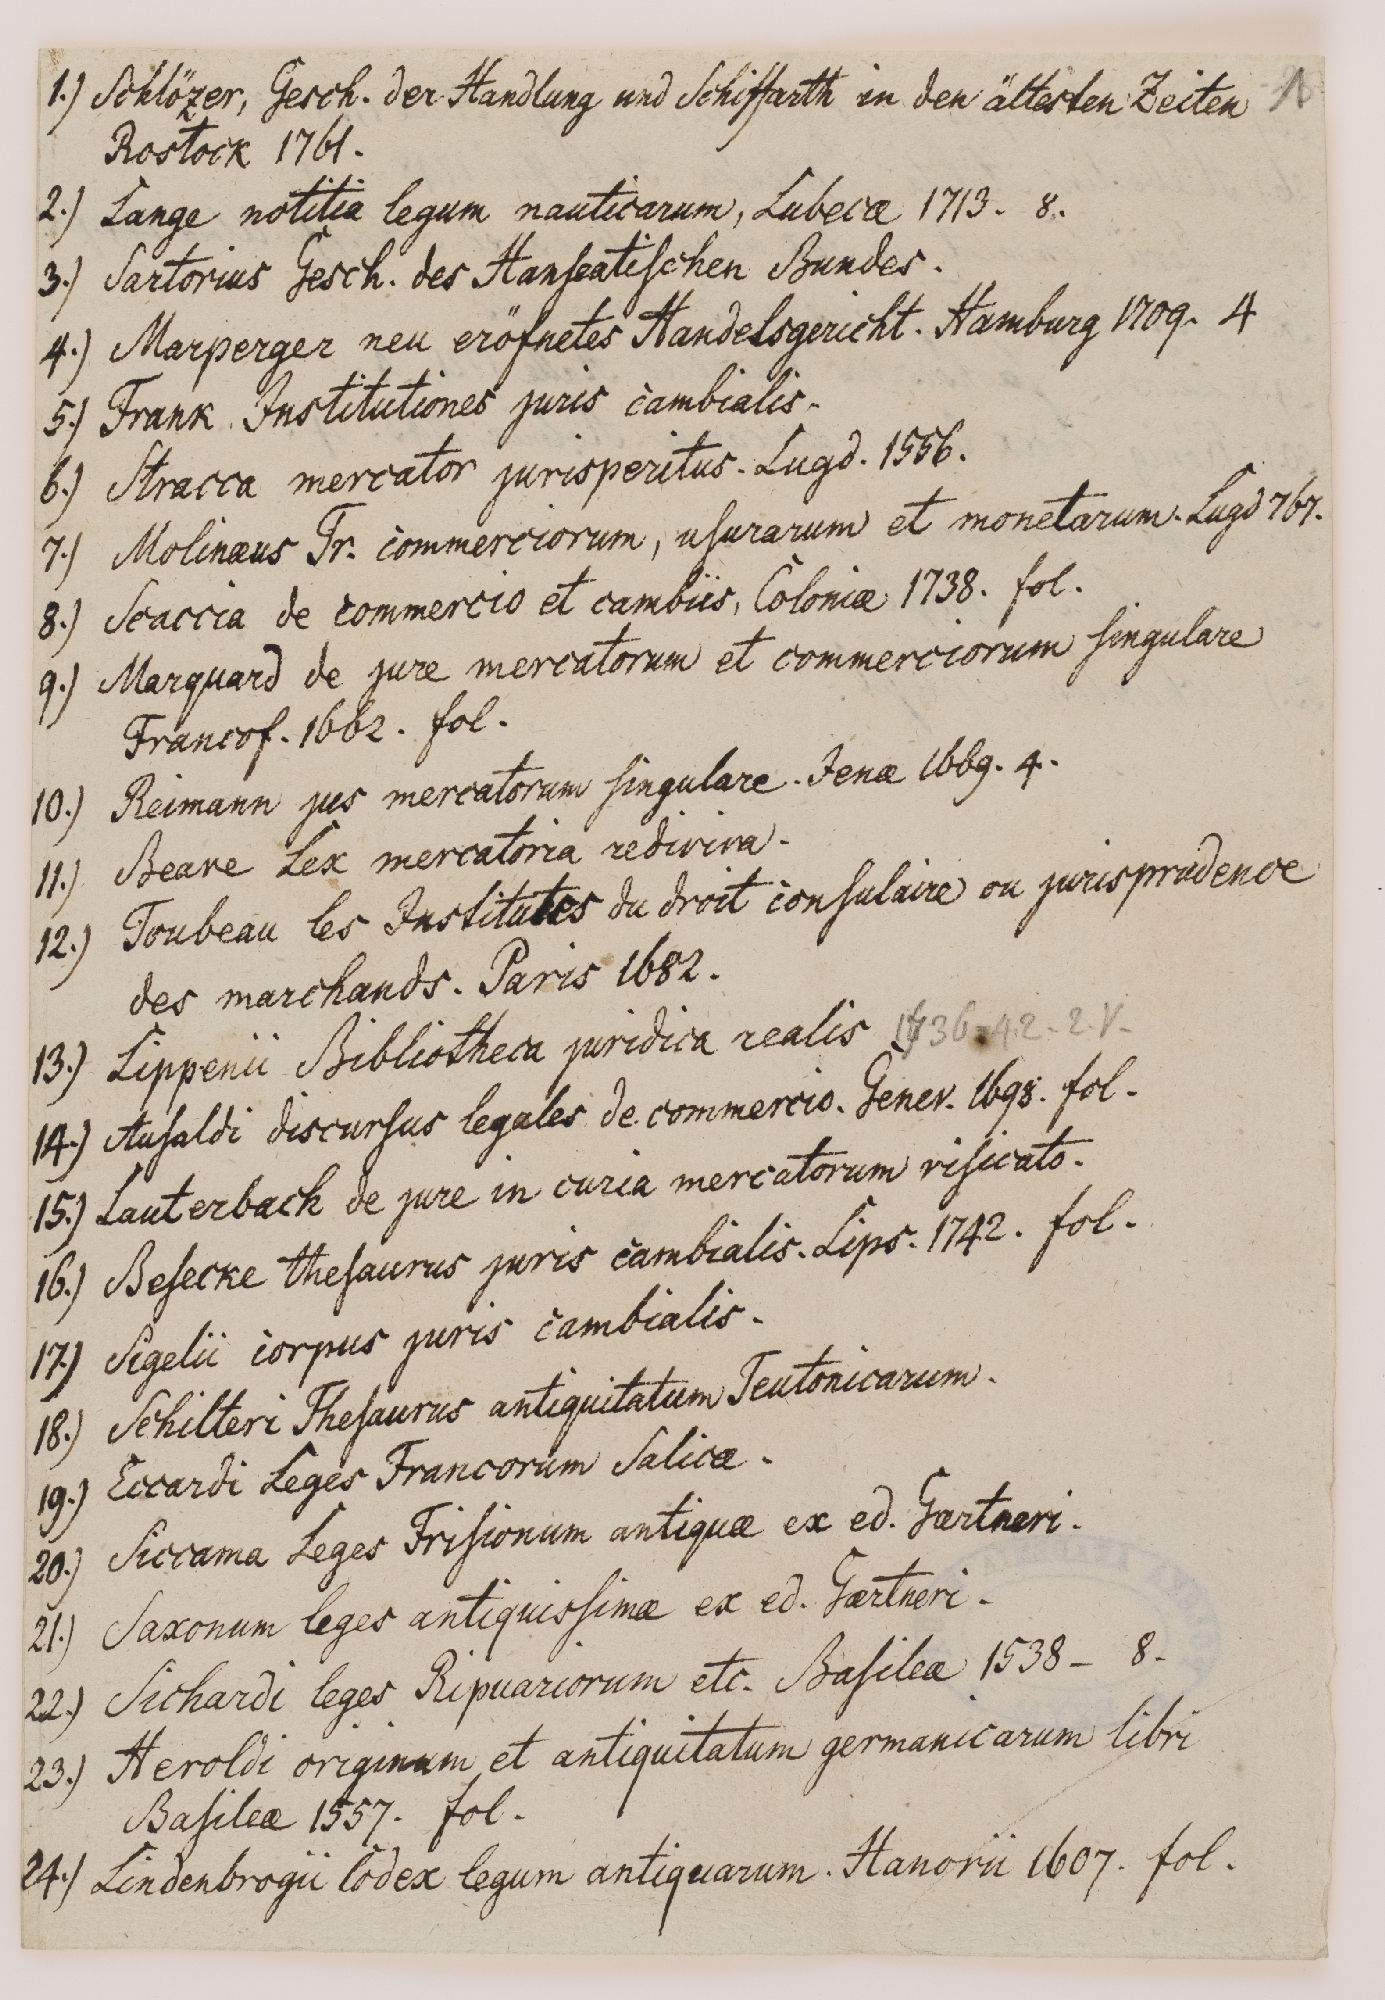 1.) Schlözer, Gesch. der Handlung und Schiffarth in den ältesten Zeiten 1
Rostock 1761.
2.) Lange notitia legum nauticarum, Lubecæ 1713. 8.
3.) Sartorius Gesch. des Hanseatischen Bundes.
4.) Marperger neu eröfnetes Handelsgericht. Hamburg 1709. 4
5.) Frank Institutiones juris cambialis.
6.) Stracca mercator jurisperitus. Lugd. 1556.
7.) Molinæus Tr. commerciorum, usurarum et monetarum. Lugd 767.
8.) Scaccia de commercio et cambiis, Coloniæ 1738. fol.
9.) Marquard de jure mercatorum et commerciorum singulare
Francof. 1662. fol.
10.) Reimann jus mercatorum singulare. Jenæ 1669. 4.
11.) Beave Lex mercatoria rediviva.
12.) Toubeau les Institutes du droit consulaire ou jurisprudence
des marchands. Paris 1682.
13.) Lippenii Bibliotheca juridica realis 1736-42-2.V-
14.) Ansaldi discursus legales de commercio. Genev. 1698. fol.
15.) Lauterbach de jure in curia mercatorum risicato.
16.) Besecke thesaurus juris cambialis. Lips. 1742. fol.
17.) Sigelii corpus juris cambialis.
18.) Schilteri Thesaurus antiquitatum Teutonicarum.
19.) Eccardi Leges Francorum Salicæ.
20.) Siccama Leges Frisionum antiquæ ex ed. Gærtneri.
21.) Saxonum leges antiquissimæ ex ed. Gærtneri.
22.) Sichardi leges Ripuariorum etc. Basileæ 1538- 8.
23.) Heroldi originum et antiquitatum germanicarum libri
Basileæ 1557. fol.
24.) Lindenbrogii Codex legum antiquarum. Hanovii 1607. fol.